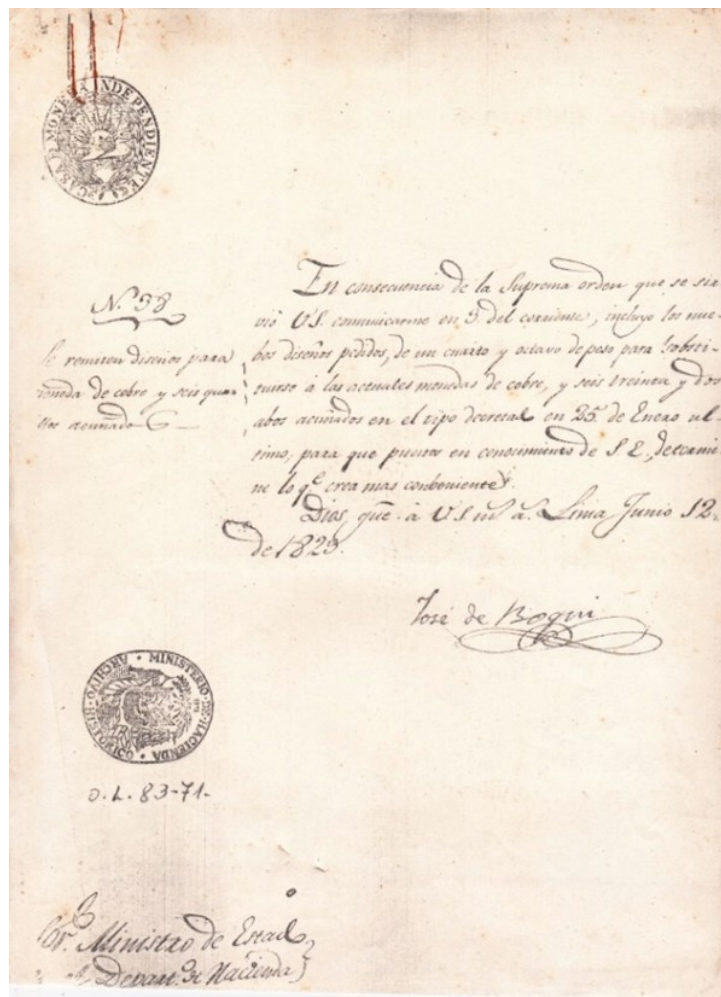 CASA D MONEDA INDEPENDIENTE
N.º 38
Se remiten diseños para
moneda de cobre y seis quar
tillos acuñado
En consecuencia de la Suprema orden que se sir
vió V.S. comunicarme en 3. del corriente, incluyo los nue-
bos diseños pedidos, de un cuarto y octavo de peso para substi-
tuirse á las actuales monedas de cobre, y seis treinta y dos
abos acuñados en el tipo decretado en 25. de Enero ul-
timo, para que puestos en conocimiento de S.E., determi-
ne lo q.e crea mas conboniente.
Dios gue. á V.S. m.s a.s Lima Junio 12.
de 1823.
José de Boqui
MINISTERIO DE HACIENDA · ARCHIVO HISTORICO
O.L. 83-71-
Sor. Ministro de Estado
Depart.o de Hacienda